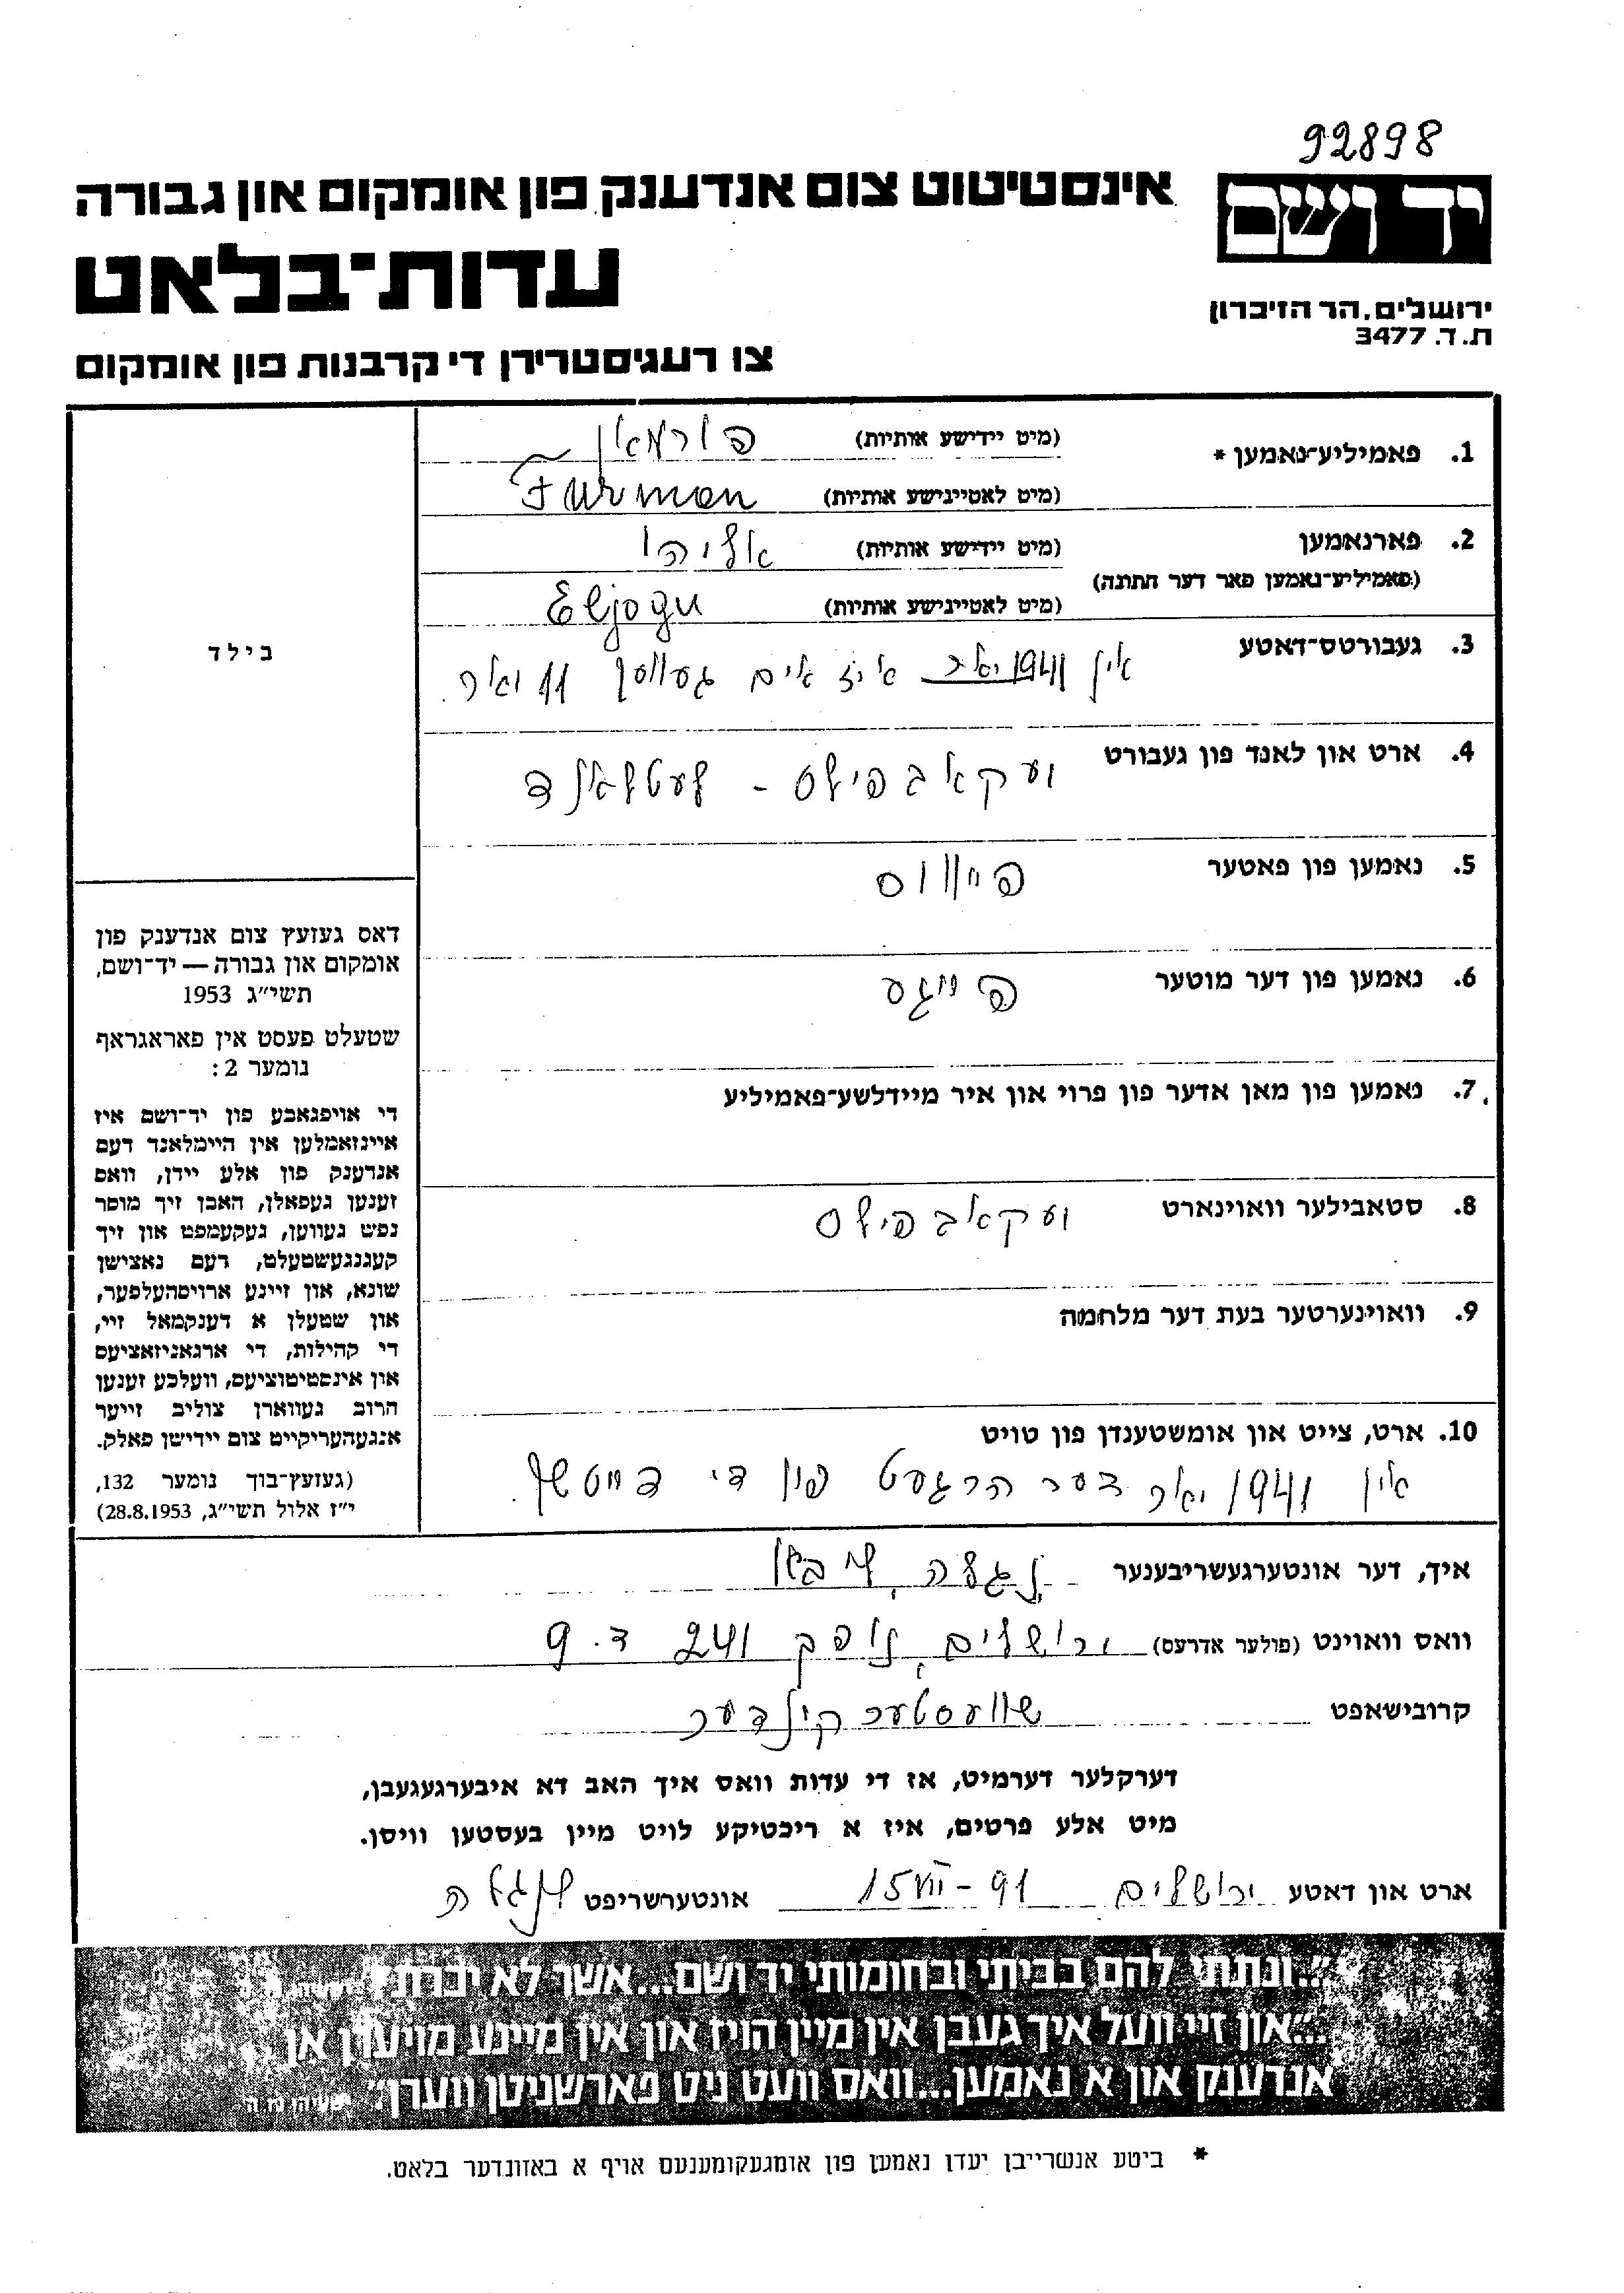 92898
יד ושם
ירושלים, הר הזיכרון
ת.ד. 3477
אינסטיטוט צום אנדענק פון אומקום און גבורה
עדות־בלאט
צו רעגיסטרירן די קרבנות פון אומקום
1. פאמיליע־נאמען * (מיט יידישע אותיות) פורמאן
(מיט לאטיינישע אותיות) Furman
2. פארנאמען (מיט יידישע אותיות) אליהו
(פאמיליע־נאמען פאר דער חתונה)
(מיט לאטיינישע אותיות) Eljogu
3. געבורטס־דאטע
אין 1941 יאר איז אים געווען 11 יאר.
4. ארט און לאנד פון געבורט
יעקאבפילס - לעטלאנד
5. נאמען פון פאטער
פייווס
6. נאמען פון דער מוטער
פייגע
7. נאמען פון מאן אדער פון פרוי און איר מיידלשע־פאמיליע
8. סטאבילער וואוינארט
יעקאבפילס
9. וואוינערטער בעת דער מלחמה
10. ארט, צייט און אומשטענדן פון טויט
אין 1941 יאר דער הרגעט פון די דייטשן.
בילד
דאס געזעץ צום אנדענק פון
אומקום און גבורה — יד־ושם,
תשי״ג 1953
שטעלט פעסט אין פאראגראף
נומער 2:
די אויפגאבע פון יד־ושם איז
איינזאמלען אין היימלאנד דעם
אנדענק פון אלע יידן, וואס
זענען געפאלן, האבן זיך מוסר
נפש געווען, געקעמפט און זיך
קעגנגעשטעלט, דעם נאצישן
שונא, און זיינע ארויסהעלפער,
און שטעלן א דענקמאל זיי,
די קהילות, די ארגאניזאציעס
און אינסטיטוציעס, וועלכע זענען
חרוב געווארן צוליב זייער
אנגעהעריקייט צום יידישן פאלק.
(געזעץ־בוך נומער 132,
י״ז אלול תשי״ג, 28.8.1953)
איך, דער אונטערגעשריבענער
וואס וואוינט (פולער אדרעס) ירושלים, 241 ד. 9
קרובישאפט שוועסטער קינדער
דערקלער דערמיט, אז די עדות וואס איך האב דא איבערגעגעבן,
מיט אלע פרטים, איז א ריכטיקע לויט מיין בעסטען וויסן.
ארט און דאטע ירושלים 15 VII - 91 אונטערשריפט
״...ונתתי להם בביתי ובחומותי יד ושם...אשר לא יכרת״
״...און זיי וועל איך געבן אין מיין הויז און אין מיינע מויערן אן
אנדענק און א נאמען...וואס וועט ניט פארשניטן ווערן״ ישעיהו נו ה
* ביטע אנשרייבן יעדן נאמען פון אומגעקומענעם אויף א באזונדער בלאט.